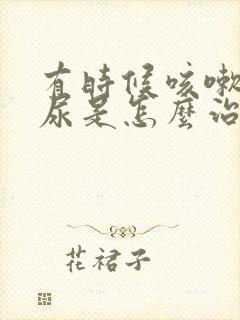 有時候咳嗽
尿是怎麼治
花裙子